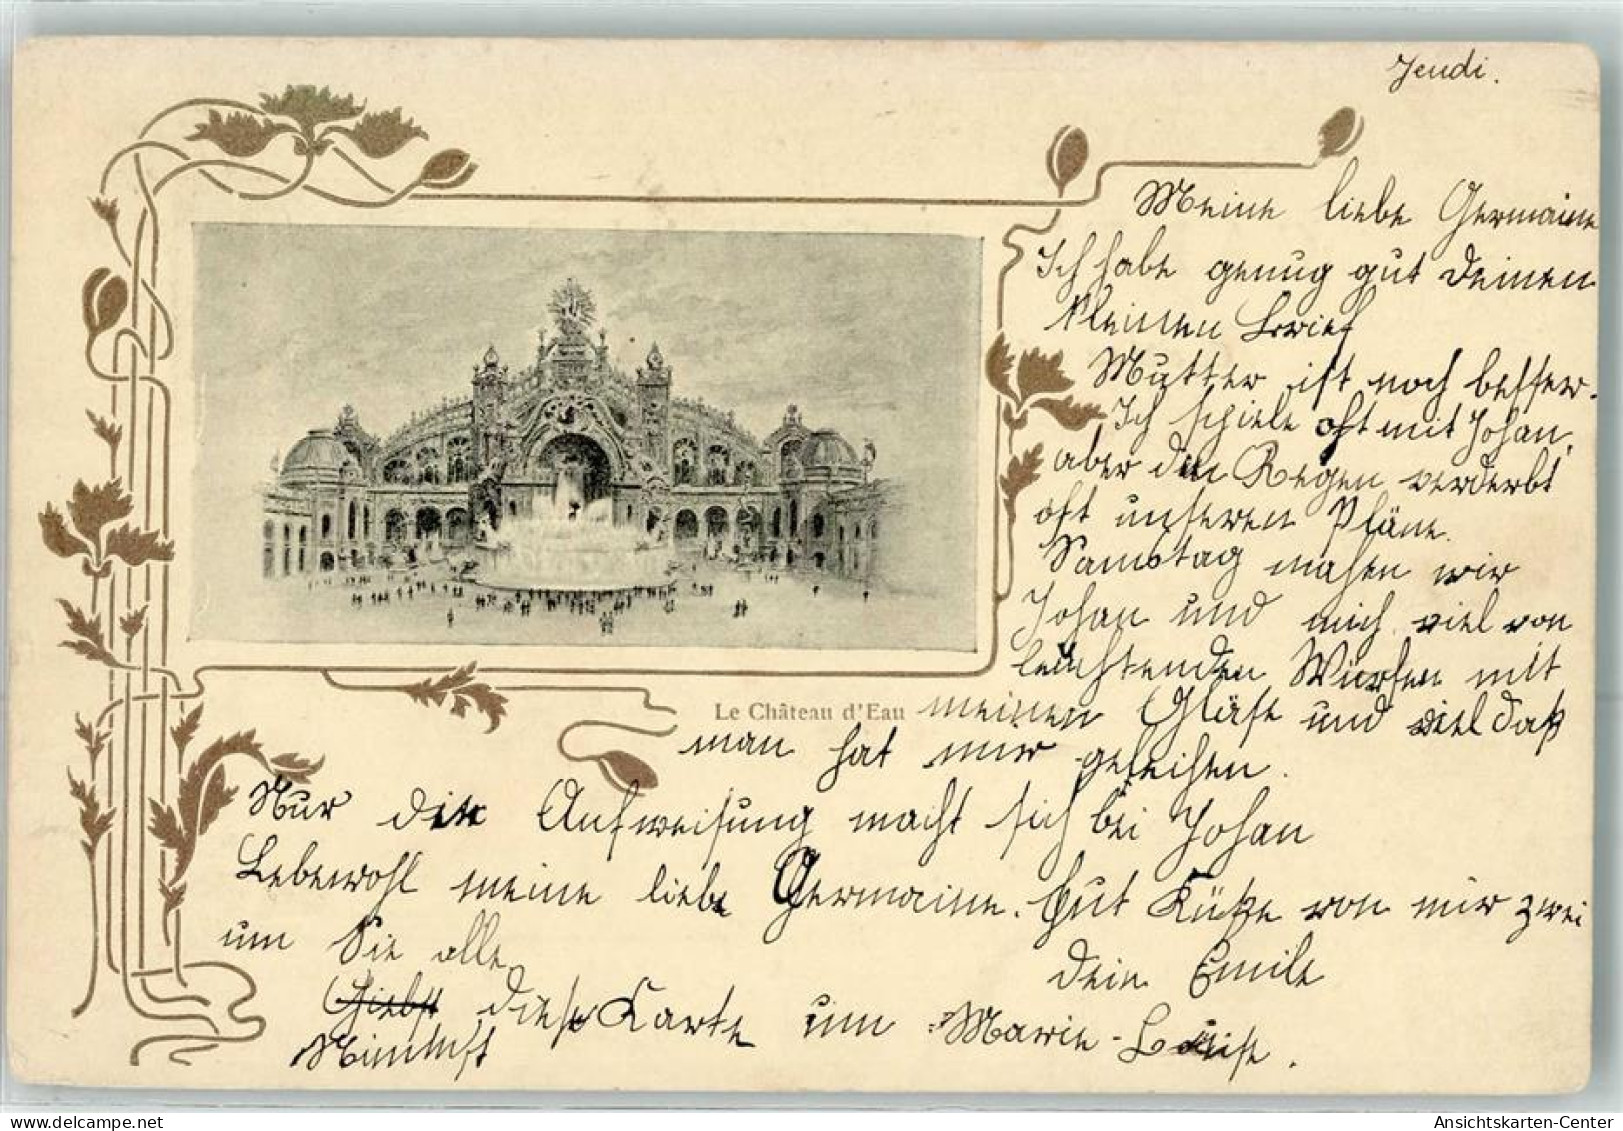 Jeudi.
Meine liebe Germaine
Ich habe genug gut deinen
kleinen Brief
Mutter ist noch besser.
Ich spiele oft mit Johan,
aber den Regen verderbt
oft unseren Pläne.
Samstag mahen wir
Johan und mich viel von
leuchtenden Würfen mit
Le Château d'Eau
meinen Gläse und viel daß
man hat mir geleihen.
Nur die Aufweisung macht sich bei Johan
Lebewohl meine liebe Germaine. Gut Küße von mir zwei
um Sie alle
dein Emile
Giebst diese Karte um Marie-Louise.
Ansichtskarten-Center